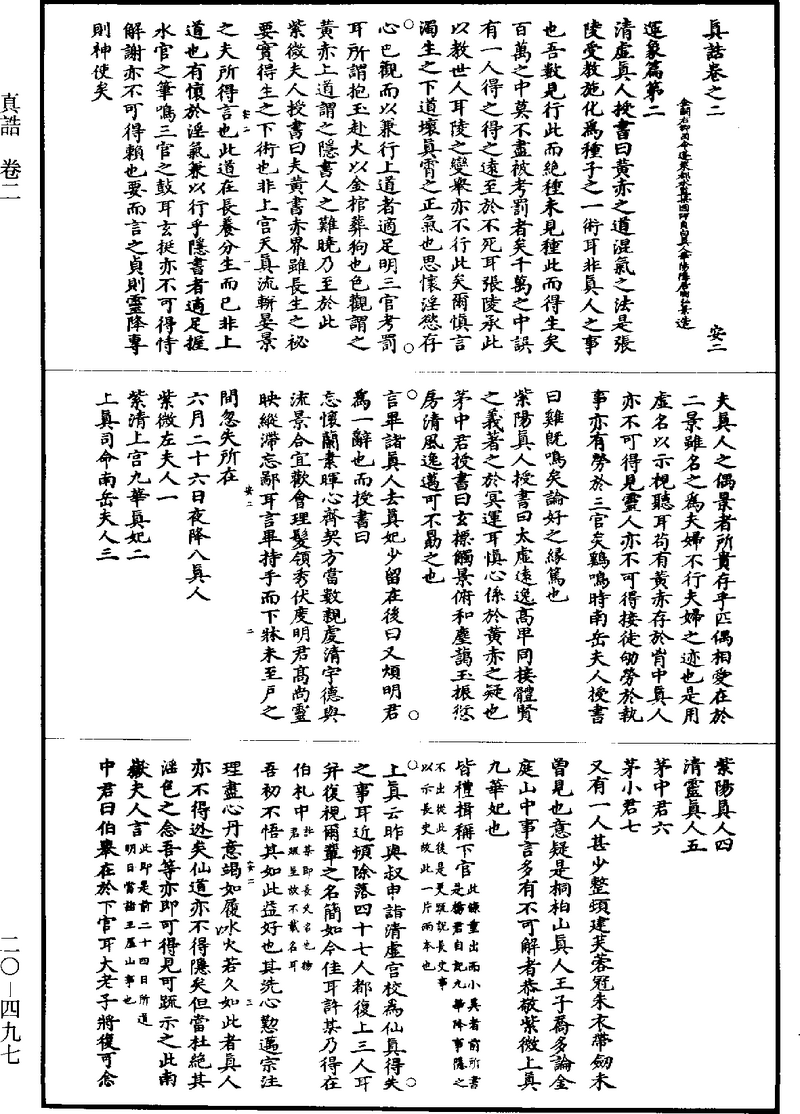 真誥卷之二
安二
金闕右卿司命蓬萊都水監梁國師貞白真人華陽隱居陶弘景造
運象篇第二
清虛真人授書曰黃赤之道混氣之法是張
陵受教施化為種子之一術耳非真人之事
也吾數見行此而絕種未見種此而得生矣
百萬之中莫不盡被考罰者矣千萬之中誤
有一人得之得之遠至於不死耳張陵承此
以教世人耳陵之變舉亦不行此矣爾慎言
濁生之下道壞真霄之正氣也思懷淫慾存
心色觀而以兼行上道者適足明三官考罰
耳所謂抱玉赴火以金棺葬狗也色觀謂之
黃赤上道謂之隱書人之難曉乃至於此
紫微夫人授書曰夫黃書赤界雖長生之祕
要實得生之下術也非上宮天真流軿晏景
之夫所得言也此道在長養分生而已非上
道也有懷於淫氣兼以行乎隱書者適足握
水官之筆鳴三官之鼓耳玄挺亦不可得恃
解謝亦不可得賴也要而言之貞則靈降專
則神使矣
夫真人之偶景者所貴存乎匹偶相愛在於
二景雖名之為夫婦不行夫婦之迹也是用
虛名以示視聽耳苟有黃赤存於胷中真人
亦不可得見靈人亦不可得接徒劬勞於執
事亦有勞於三官矣鷄鳴時南岳夫人授書
曰雞旣鳴矣論好之緣篤也
紫陽真人授書曰太虛遠逸高卑同接體賢
之義著之於冥運耳慎心係於黃赤之疑也
茅中君授書曰玄標觸景俯和塵藹玉振愆
房清風逸邁可不勗之也
言畢諸真人去真妃少留在後曰又煩明君
為一辭也而授書曰
忘懷蘭素暉心齊契方當數親虔清宇德與
流景合宜歡會理髮領秀伏度明君高尚靈
映縱滯忘鄙耳言畢持手而下牀未至戶之
間忽失所在
六月二十六日夜降八真人
紫微左夫人一
紫清上宮九華真妃二
上真司命南岳夫人三
紫陽真人四
清靈真人五
茅中君六
茅小君七
又有一人甚少整頓建芙蓉冠朱衣帶劒未
曾見也意疑是桐柏山真人王子喬多論金
庭山中事言多有不可解者恭敬紫微上真
九華妃也
皆禮揖稱下官此錄重出而小異者前所書
是楊君自記九華降事隱之
不出從此後是更疏說長史事
以示長史故此一片兩本也
上真云昨與叔申詣清虛宮校為仙真得失
之事耳近頓除落四十七人都復上三人耳
并復視爾輩之名簡如今佳耳許某乃得在
伯札中許某即長史名也楊
君疏呈故不載名耳
吾初不悟其如此益好也其洗心懃邁宗注
理盡心丹意竭如履氷火若久如此者真人
亦不得迯矣仙道亦不得隱矣但當杜絕其
淫色之念吾等亦即可得見可疏示之此南
嶽夫人言此即是前二十四日所道
明日當詣王屋山事也
中君曰伯舉在於下官耳大老子將復可念
真誥　卷二
二〇－四九七